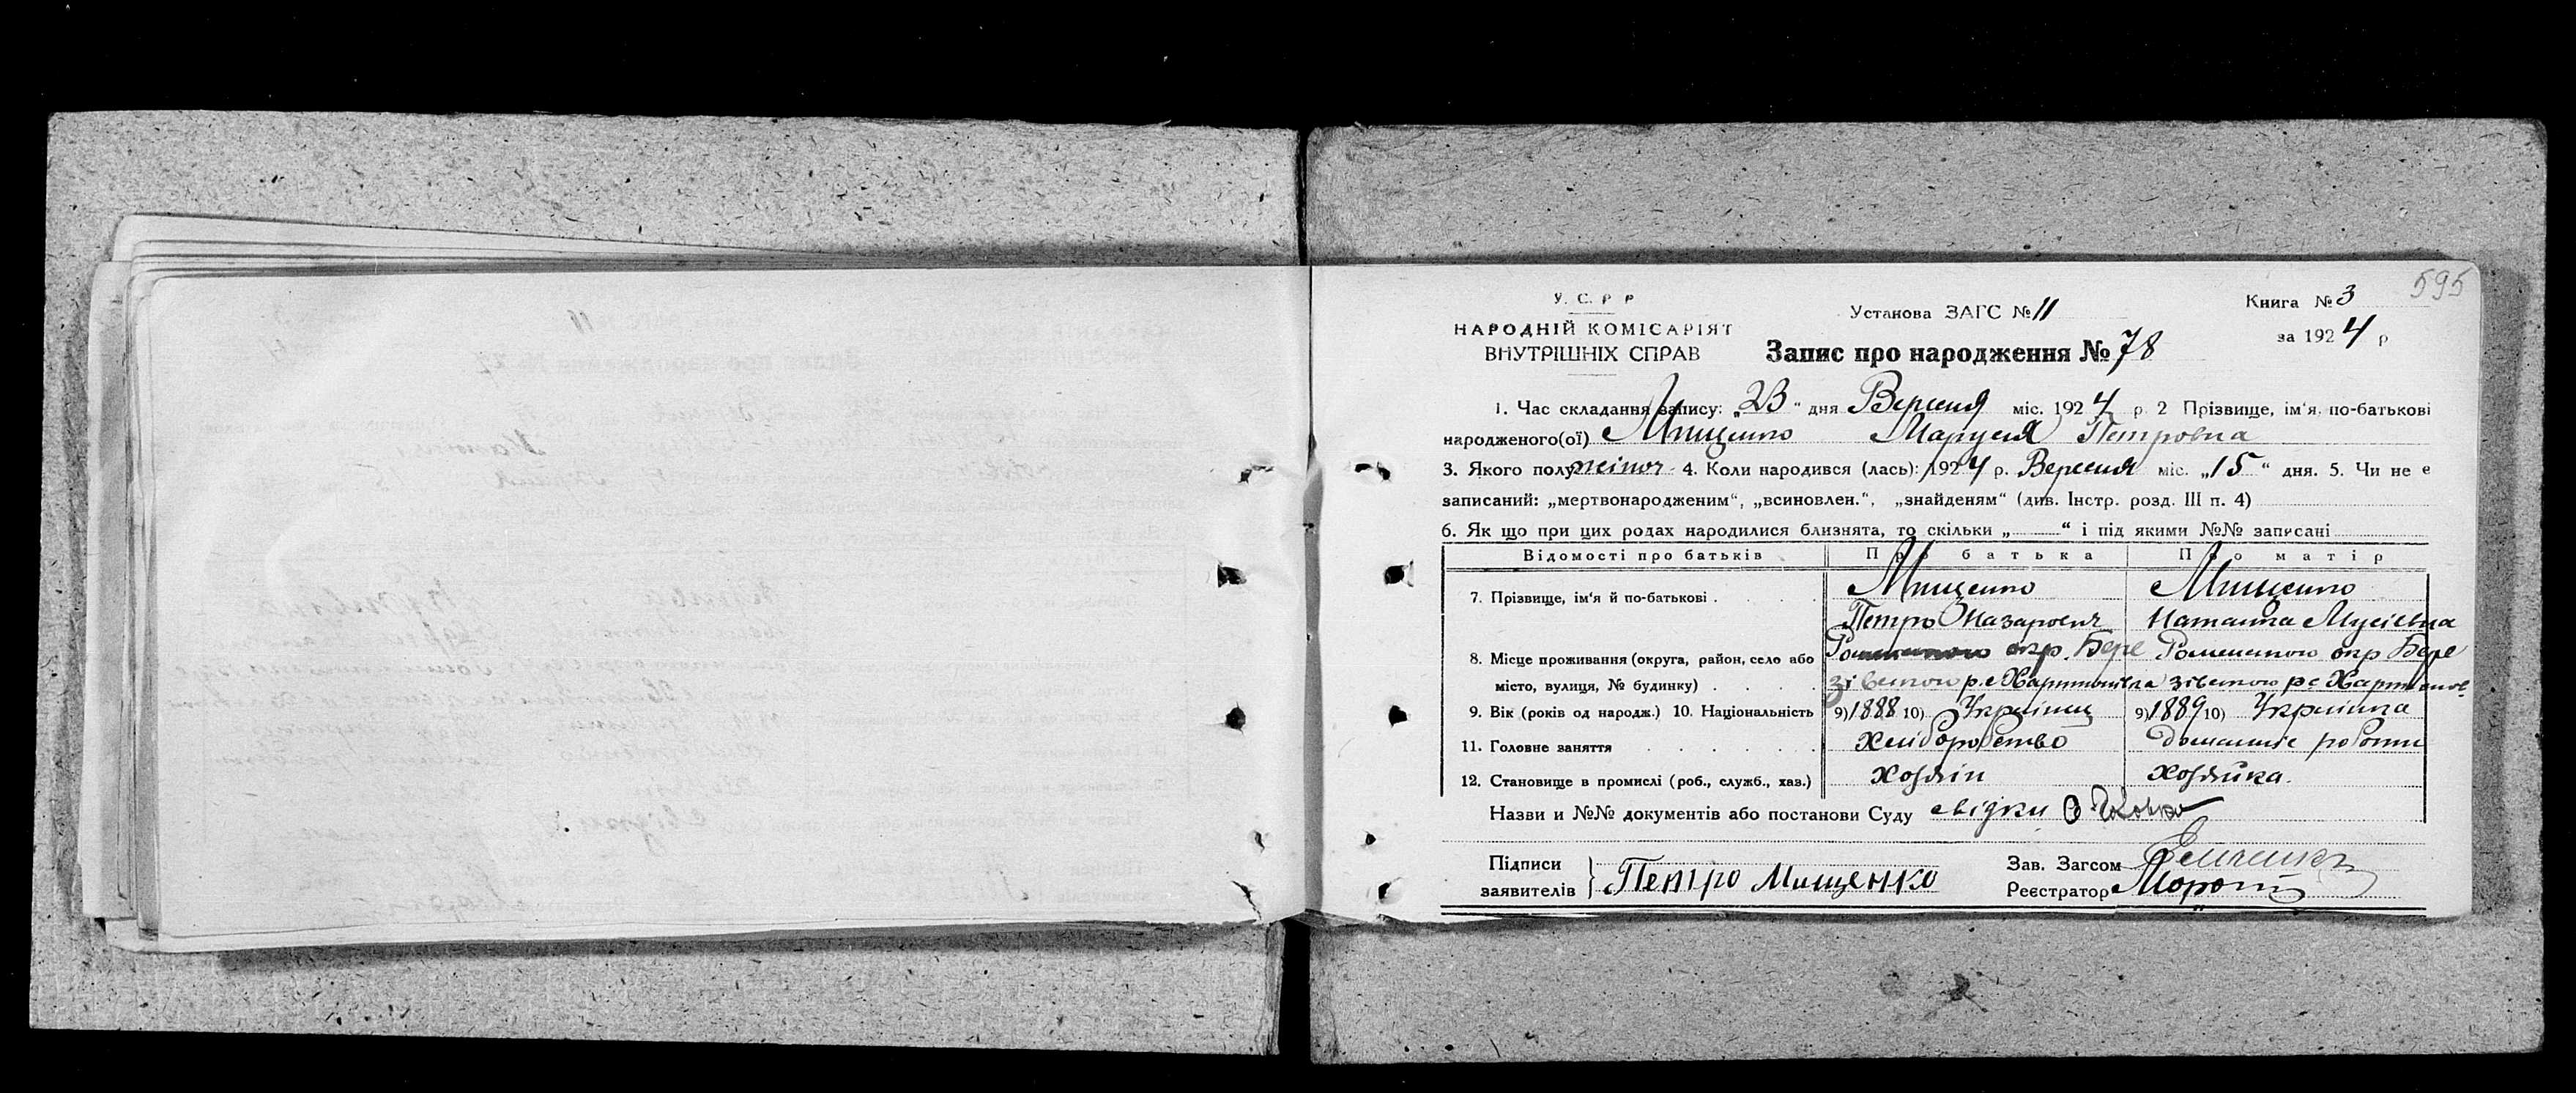 595
У. С. Р Р
НАРОДНІЙ КОМІСАРІЯТ
ВНУТРІШНІХ СПРАВ
Установа ЗАГС № 11
Книга № 3
за 1924 р
Запис про народження № 78
1. Час складання запису: „23" дня Вересня міс. 1924 р. 2 Прізвище, ім'я, по-батькові
народженого(ої) Мищенко Маруся Петровна
3. Якого полу жіноч. 4. Коли народився (лась): 1924 р. Вересня міс. „15" дня. 5. Чи не є
записаний: „мертвонародженим", „всиновлен.", „знайденям" (див. Інстр. розд. III п. 4)
6. Як що при цих родах народилися близнята, то скільки „ " і під якими №№ записані
Відомості про батьків Про батька Про матір
7. Прізвище, ім'я й по-батькові Мищенко Мищенко
Петро Назарович Наталка Мусіевна
8. Місце проживання (округа, район, село або Роменського окр. Бере Роменського окр Бере
місто, вулиця, № будинку) зівського р. с Харитонівка зівського р с
9. Вік (років од народж.) 10. Національність 9) 1888 10) Українец 9) 1889 10) Українка
11. Головне заняття Хліборобство Домашнє роботи
12. Становище в промислі (роб., служб., хаз.) Хозяін Хозяйка.
Назви и №№ документів або постанови Суду свідки
Підписи
заявителів } Петро Мищенко
Зав. Загсом
Реєстратор